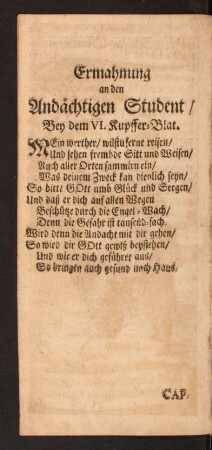 Ermahnung
an den
Andächtigen Student /
Bey dem VI. Kupffer-Blat.
MEin werther / wilstu ferne reisen /
Und sehen frembde Sitt und Weisen /
Auch aller Orten sammlen ein /
Was deinem Zweck kan dienlich seyn /
So bitte GOtt umb Glück und Seegen /
Und daß er dich auf allen Wegen
Beschütze durch die Engel-Wach /
Denn die Gefahr ist tausend-fach.
Wird denn die Andacht mit dir gehen /
So wird dir GOtt gewiß beystehen /
Und wie er dich geführet aus /
So bringen auch gesund nach Haus.
CAP.